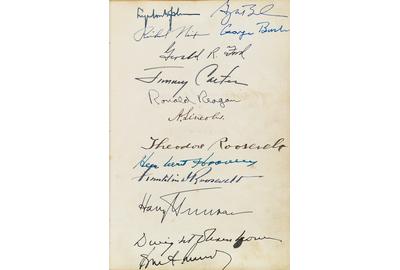 Lyndon Johnson
Richard Nixon George Bush
Gerald R. Ford
Jimmy Carter
Ronald Reagan
A. Lincoln.
Theodore Roosevelt
Herbert Hoover
Franklin D Roosevelt
Harry Truman
Dwight D Eisenhower